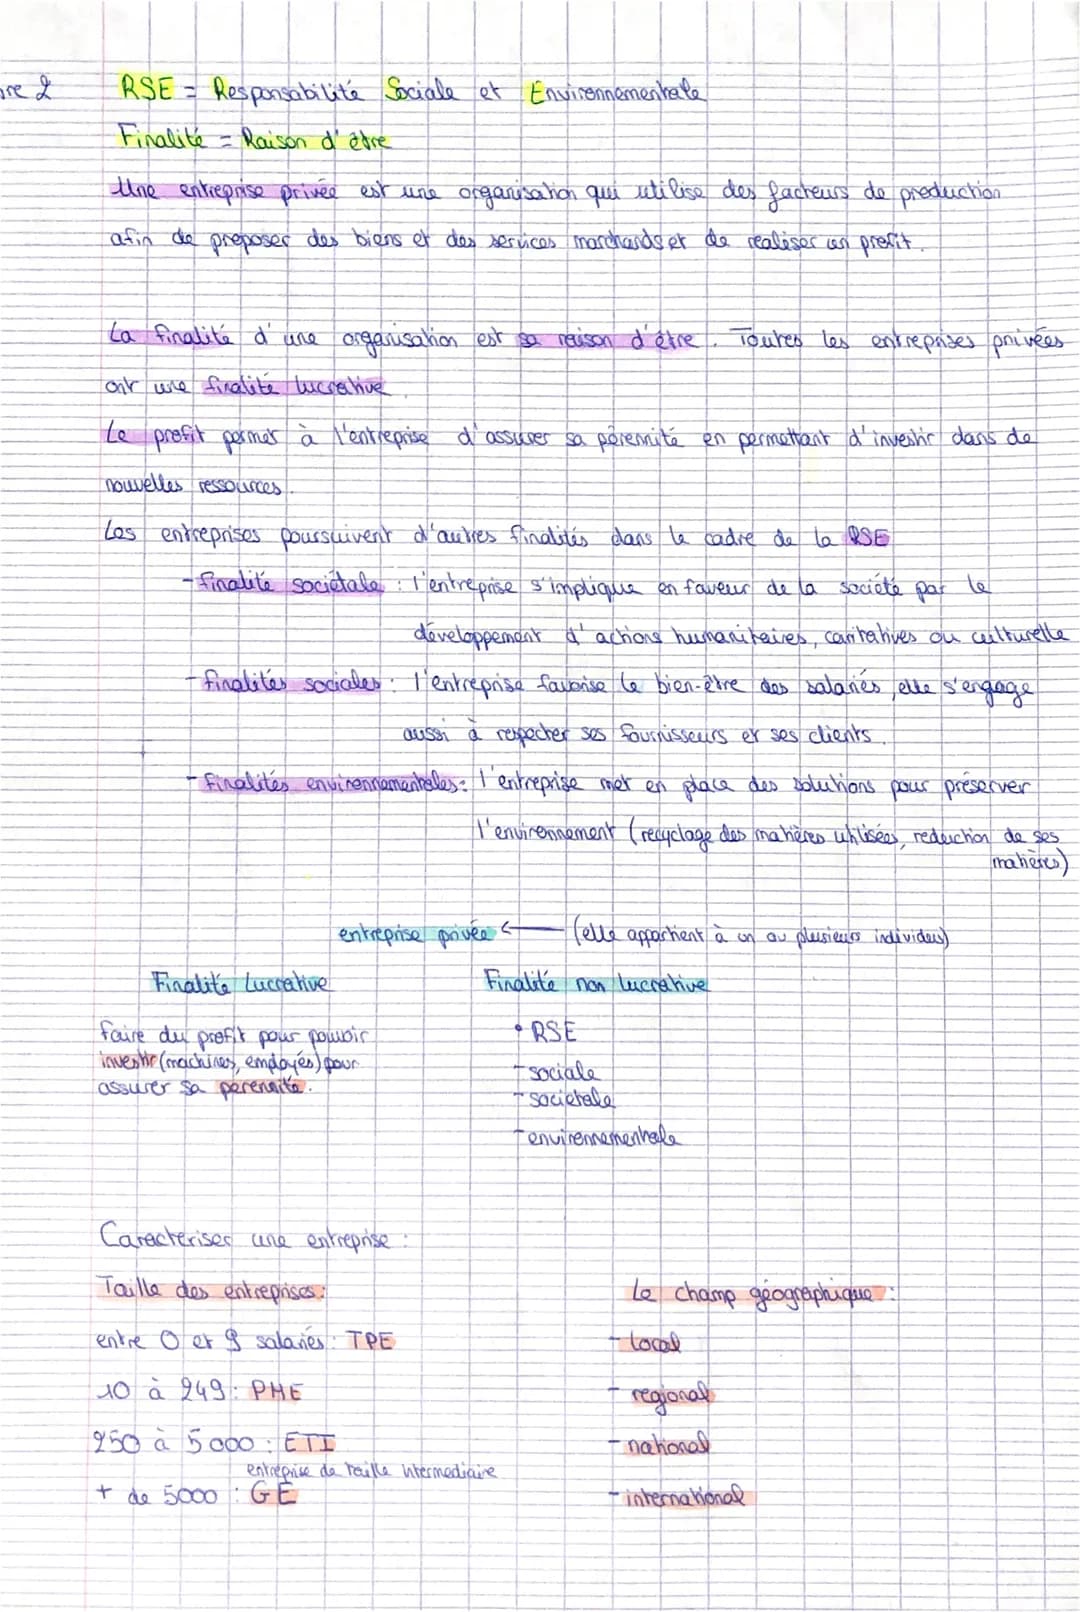 re 2 RSE = Responsabilité Sociale et Environnementale
Finalité = Raison d'être
Une entreprise privée est une organisation qui utilise des facteurs de production
afin de proposer des biens et des services marchands et de realiser un profit.
La finalité d'une organisation est sa raison d'être. Toutes les entreprises privées
ont une finalité lucrative.
Le profit permet à l'entreprise d'assurer sa pérennité en permettant d'investir dans de
nouvelles ressources.
Les entreprises poursuivent d'autres finalités dans le cadre de la RSE
- finalité sociétale : l'entreprise s'implique en faveur de la société par le
développement d'actions humanitaires, caritatives ou culturelle
- finalités sociales : l'entreprise favorise le bien-être des salariés, elle s'engage
aussi à respecter ses fournisseurs et ses clients.
- finalités environnementales : l'entreprise met en place des solutions pour préserver
l'environnement (recyclage des matières utilisées, reduction de ses
matières)
entreprise privée ← (elle appartient à un ou plusieurs individus)
Finalité Lucrative Finalité non lucrative
faire du profit pour pouvoir
investir (machines, employés) pour
assurer sa perennité.
• RSE
- sociale
- societale
- environnementale
Caracteriser une entreprise :
Taille des entreprises : Le champ géographique :
entre 0 et 9 salariés : TPE - local
10 à 249 : PME - regional
250 à 5000 : ETI - national
entreprise de taille intermediaire
+ de 5000 : GE - international